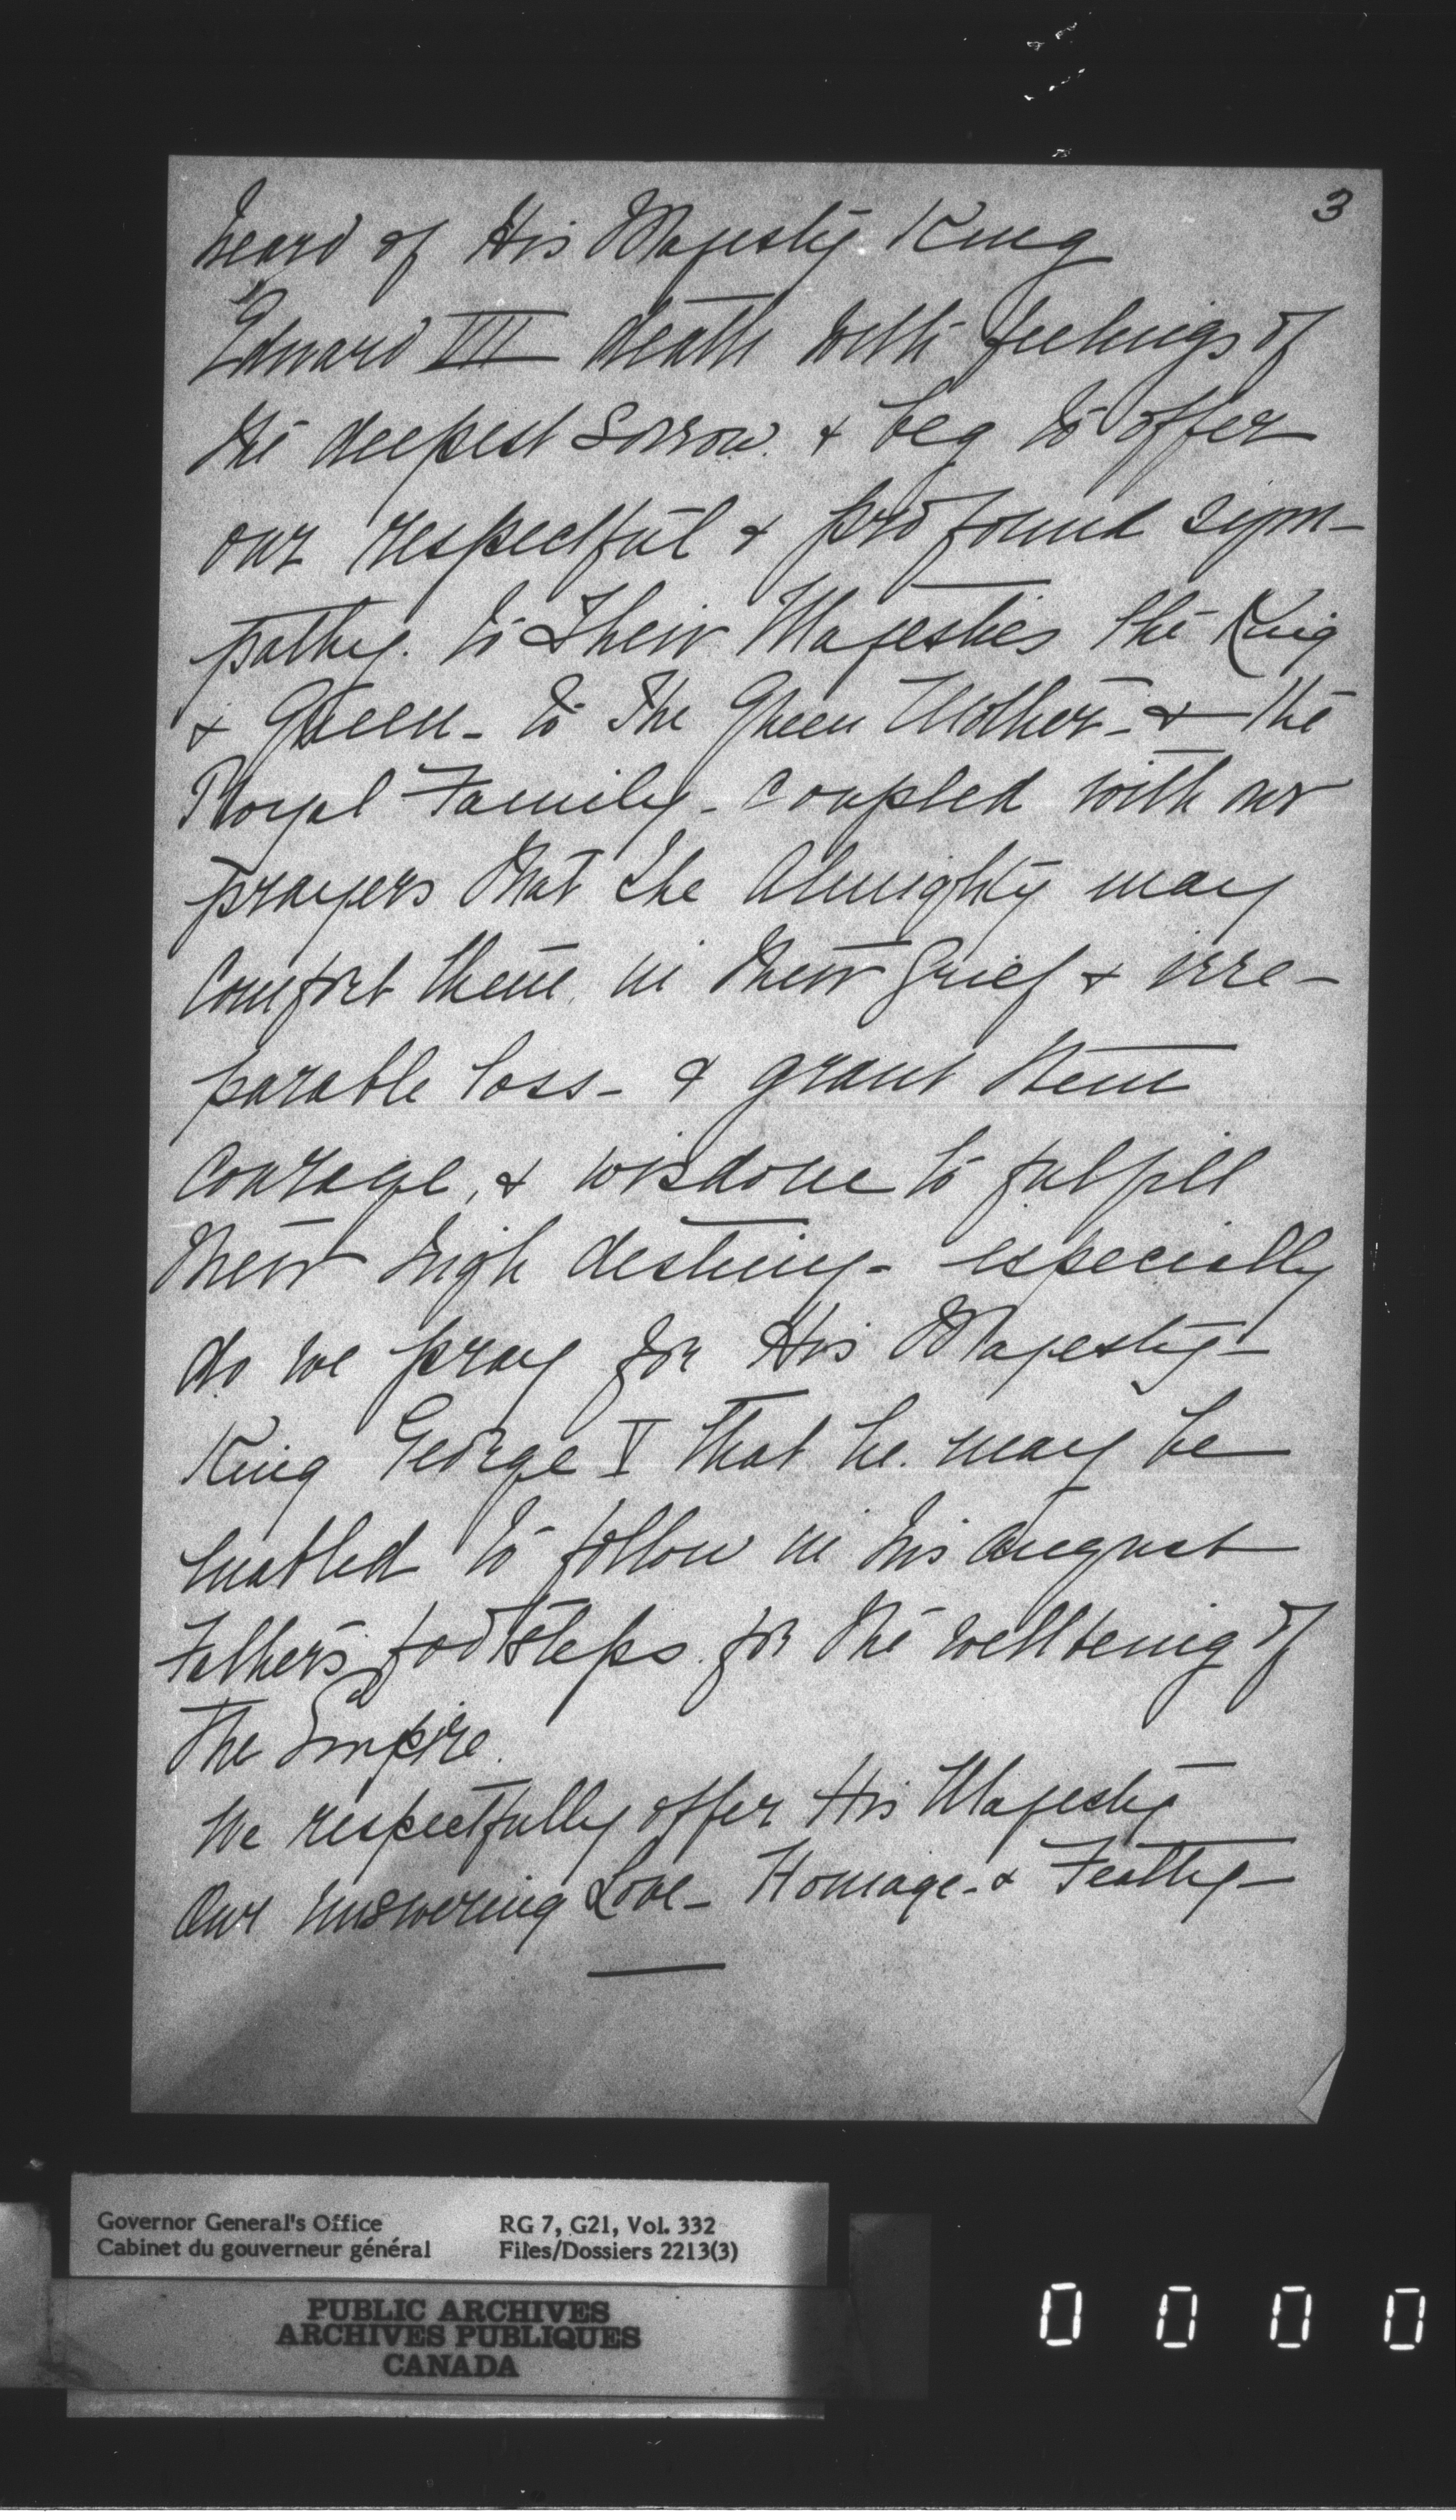 3
heard of His Majesty King
Edward VII death with feelings of
the deepest sorrow & beg to offer
our respectful & profound sym-
pathy. to Their Majesties the King
& Queen - to the Queen Mother - & the
Royal Family - coupled with our
prayers that the Almighty may
comfort them in their grief & irre-
parable loss - & grant them
courage, & wisdome to fulfill
their high destiny - especially
do we pray for His Majesty -
King George V that he may be
enabled to follow in his august
Father's footsteps for the wellbeing of
the Empire.
We respectfully offer His Majesty
Our unswerving Love - Homage - & Fealty -
Governor General's Office
Cabinet du gouverneur général
RG 7, G21, Vol. 332
Files/Dossiers 2213(3)
PUBLIC ARCHIVES
ARCHIVES PUBLIQUES
CANADA
0 0 0 0